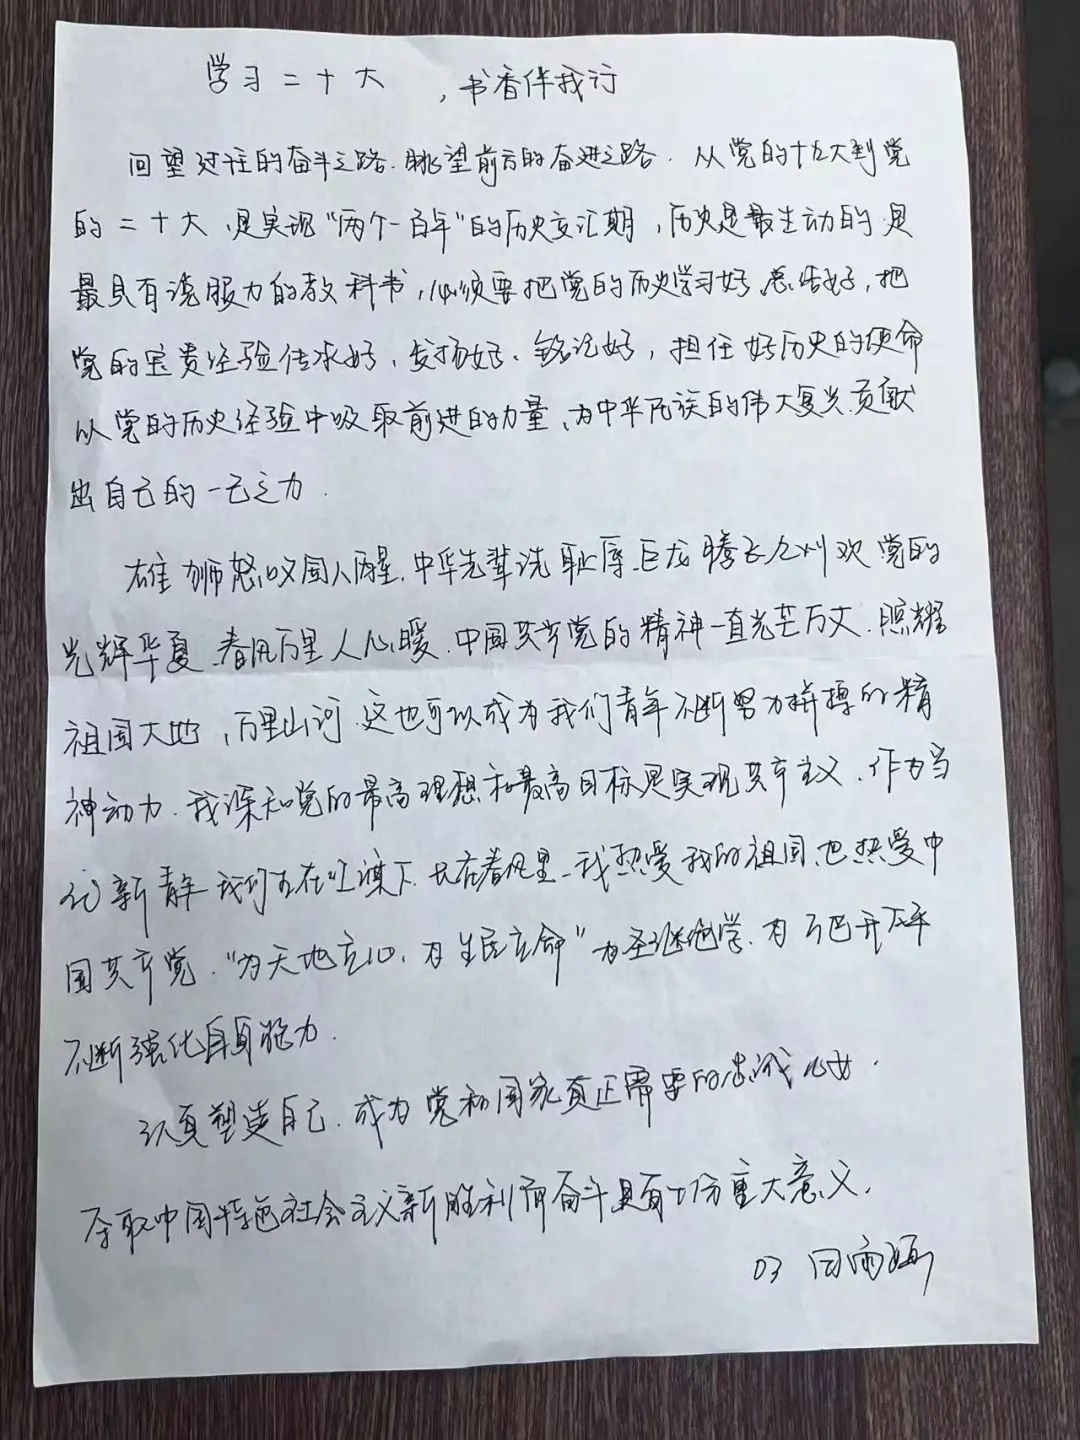 学习二十大 ，书香伴我行
回望过往的奋斗之路，眺望前方的奋进之路．从党的十九大到党
的二十大，是实现“两个一百年”的历史交汇期，历史是最生动的是
最具有说服力的教科书，必须要把党的历史学习好、总结好，把
党的宝贵经验传承好，发扬好、铭记好，担任好历史的使命
从党的历史经验中吸取前进的力量，为中华民族的伟大复兴贡献
出自己的一己之力．
雄狮怒吼国人醒，中华先辈洗耻辱．巨龙腾飞九州欢党的
光辉华夏，春风万里人心暖．中国共产党的精神一直光芒万丈．照耀
祖国大地，万里山河．这也可以成为我们青年不断努力拼搏的精
神动力．我深知党的最高理想和最高目标是实现共产主义．作为当
代新青年我们生在红旗下，长在春风里．我热爱我的祖国，也热爱中
国共产党．“为天地立心，为生民立命”为圣继绝学，为万巴开太平
不断强化自身能力．
认真塑造自己．成为党和国家真正需要的忠诚儿女．
夺取中国特色社会主义新胜利而奋斗具有十分重大意义．
03